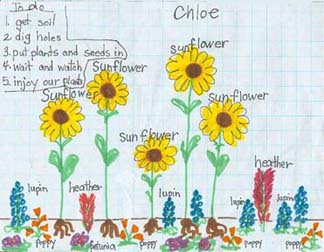 To do
1. get soil
2 dig holes
3. put plants and seeds in
4. wait and watch
5. injoy our plants
Chloe
sunflower
Sunflower
Sunflower
sunflower
sunflower
heather
lupin
heather
lupin
lupin
lupin
poppy
petunia
poppy
poppy